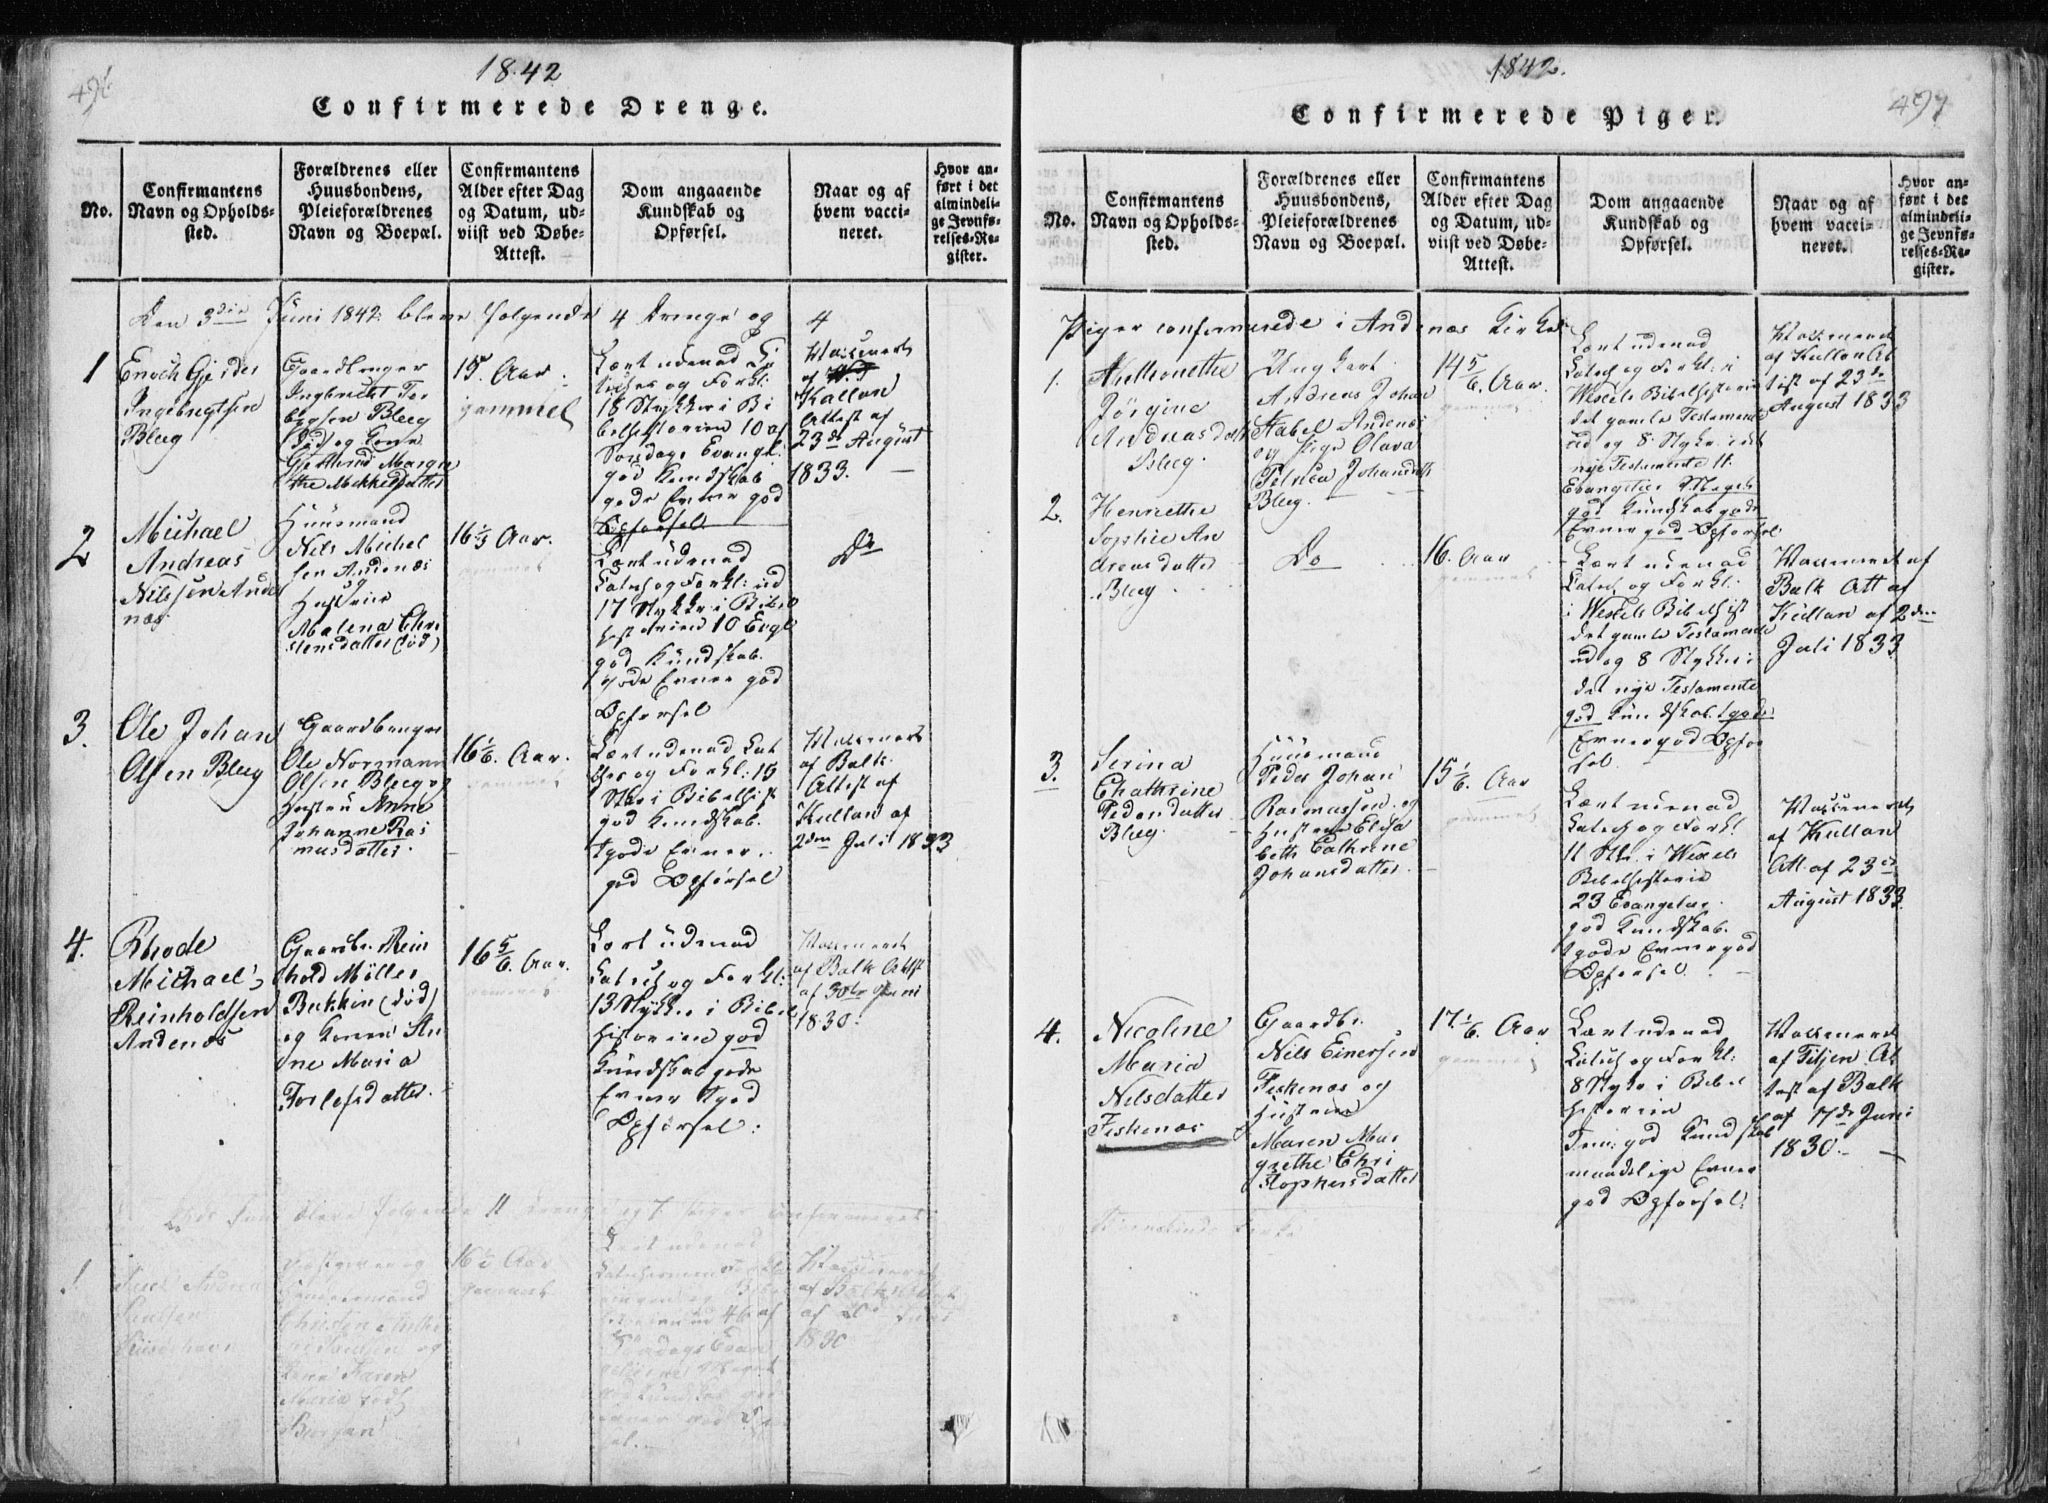 1842
Confirmerede Drenge.
No.
Confirmantens
Navn og Opholds-
sted.
Forældrenes eller
Huusbondens,
Pleieforældrenes
Navn og Boepæl.
Confirmantens
Alder efter Dag
og Datum, ud-
viist ved Døbe-
Attest.
Dom angaaende
Kundskab og
Opførsel.
Naar og af
hvem vacci-
neret.
Hvor an-
ført i det
almindeli-
ge Jevnfø-
relses-Re-
gister.
Den 3die Juni 1842 bleve følgende 4 Drenge og 4
1
Enoch
Ingebrigtsen
Bleeg
Gaardbruger
Ingebrigt
Bleeg
(død) og Kone
15 Aar
gammel
Lært udenad
og Forkl:
18 Stykker i Bi
belhistorien 10 af
Søndags Evangl:
god Kundskab
gode Evner god
Opførsel
Vaccineret
af
Kullan
Attest af
23de August
1833.
2
Michael
Andreas
Nilssen Ande
næs
Huusmand
Nils Michel
sen Andenæs
og
Hustrue
Malena Chri
stensdatter (død)
16 1/3 Aar.
gammel
Lært udenad
Catech og Forkl: ud
17 Stykker i Bibel
historien 10 Evgl
god Kundskab.
gode Evner god
Opførsel
Do
3.
Ole Johan
Olsen Bleeg
Gaardbruger
Ole Normann
Olsen Bleeg og
Hustru Anne
Johanne Ras
musdatter
16 1/6 Aar.
gammel
Lært udenad Cat
og Forkl: 15
Stkr i Bibelhist
god Kundskab.
gode Evner.
god Opførsel
Vaccineret
af Balk.
Attest af
Kullan af
2den Juli 1833
4.
Rhode
Michael
Reinholdsen
Andenæs
Gaardbr. Rein
hold Møller
(død)
og Konen An
ne Maria
Torlefsdatter.
16 5/6 Aar.
gammel
Lært udenad
Catech og Forkl:
13 Stykker i Bibel
historien god
Kundskab gode
Evner god
Opførsel.
Vaccineret
af Balk Attest
af 30te Juni
1830.
bleve følgende 11 Drenge og 7 Piger confirmeret
1
16 1/2 Aar
gammel
Lært udenad
46 af
Søndags Evan
god Kundskab
Vaccineret
af Balk
af
1830
1842.
497
Confirmerede Piger.
No.
Confirmantens
Navn og Opholds-
sted.
Forældrenes eller
Huusbondens,
Pleieforældrenes
Navn og Boepæl.
Confirmantens
Alder efter Dag
og Datum, ud-
viist ved Døbe-
Attest.
Dom angaaende
Kundskab og
Opførsel.
Naar og af
hvem vacci-
neret.
Hvor an-
ført i det
almindeli-
ge Jevnfø-
relses-Re-
gister.
Piger confirmerede i Andenæs Kirke
1.
Jørgine
Andreasdatt
Bleeg.
Ungkarl
Andreas Johan
Stabel Andenæs
og Pige Olava
Petrica Johansdtt
Bleeg.
14 5/6 Aar.
gammel
Lært udenad
Catech og Forkl: i
Wexels Bibelhistorie
det gamle Testamente
ud og 8 Stykr. i det
nye Testamente 11.
Evangelier Meget
god Kundskab gode
Evner god Opførsel
Vaccineret
af Kullan At
test af 23de
August 1833
2.
Henriethe
Sophie An
dreasdatter
Bleeg
Do
16. Aar
gammel
Lært udenad
Catech og Forkl.
i Wexels Bibelhist
det gamle Testamente
ud og 8 Stykker i
det nye Testamente
god Kundskab. gode
Evner god Opfør
sel.
Vaccineret af
Balk Att af
Kullan af 2den
Juli 1833
3.
Serina
Chathrine
Pedersdatter
Bleeg.
Huusmand
Peder Johan
Rasmussen og
Hustrue Elisa
beth Cathrine
Johansdatter.
15 1/6 Aar
gammel
Lært udenad
Catech og Forkl
11 Stkr. i Wexels
Bibelhistorie
23 Evangelier.
god Kundskab.
gode Evner god
Opførsel.
Vaccineret
af Kullan
Att. af 23de
August 1833.
4.
Nicoline
Maria
Nilsdatter
Fiskenæs
Gaardbr.
Nils Einersen
Fiskenæs og
Hustrue
Maren Mar
grethe Chri
stophersdatter
17 1/6 Aar
gammel
Lært udenad
Catech og Forkl:
8 Stykr i Bibel
historien
god Kundskab
maadelige Evner
god Opførsel.
Vaccineret
af At
test af Balk
af 17de Juni
1830.